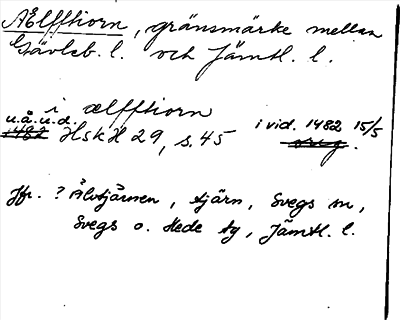 Ælfftiorn, gränsmärke mellan
Gävleb. l. och Jämtl. l.
i ælfftiorn
u.å.u.d. i vid. 1482 15/5
1482 HskH 29, s. 45 orig.
Jfr. ? Älvtjärnen, tjärn, Svegs sn,
Svegs o. Hede tg, Jämtl. l.